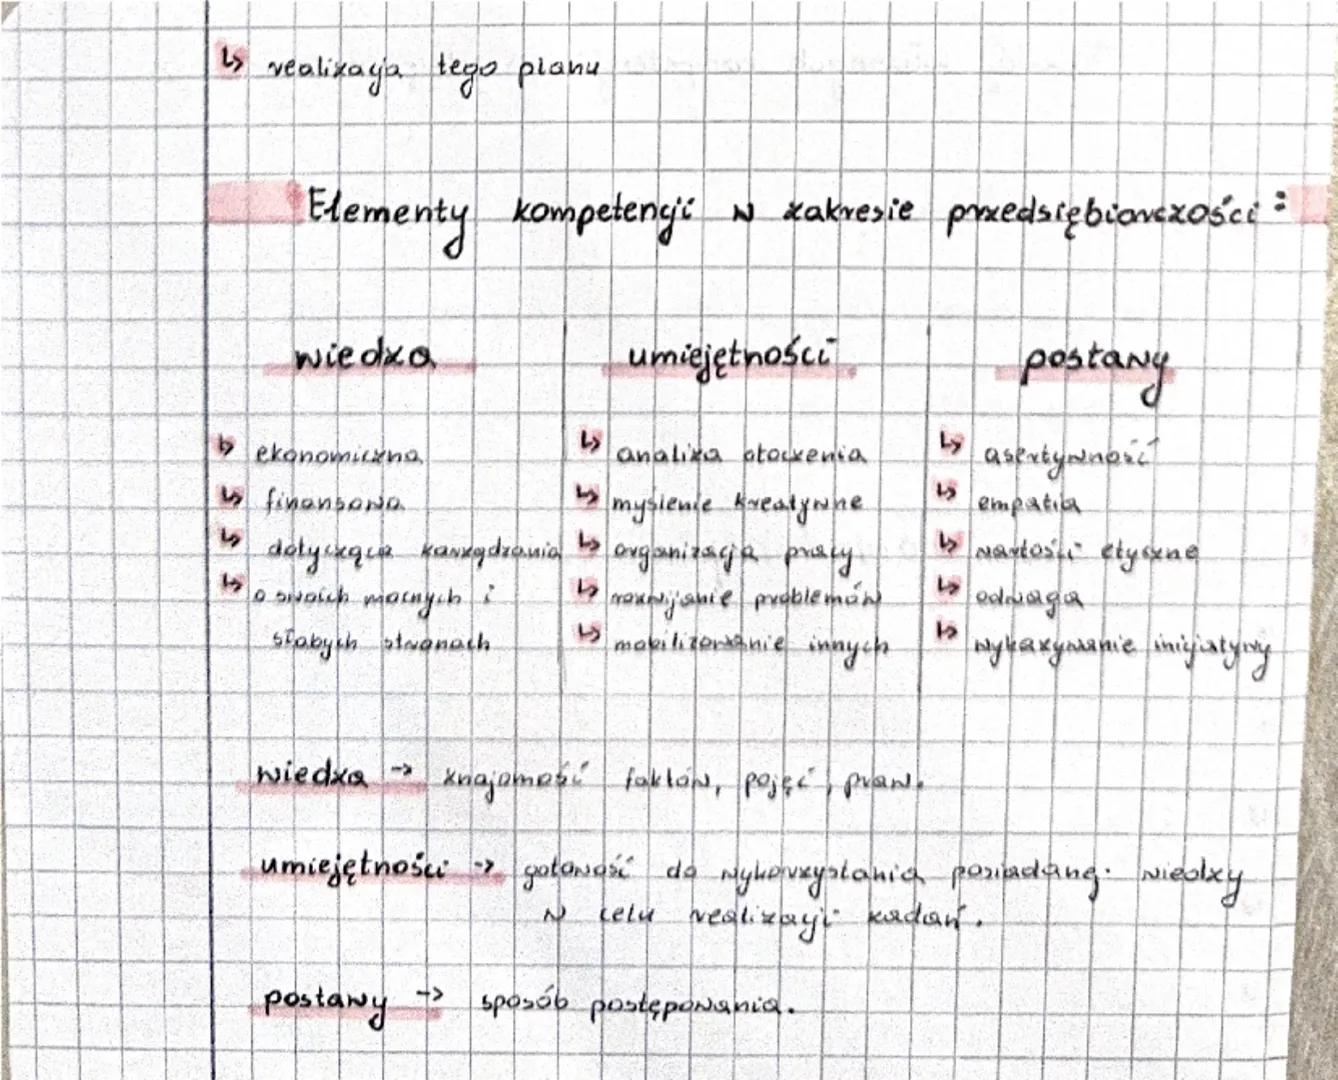 ↳ realizacja tego planu
Elementy kompetencji w zakresie przedsiębiorczości:
wiedza umiejętności postawy
↳ ekonomiczna ↳ analiza otoczenia ↳ asertywność
↳ finansowa ↳ myślenie kreatywne ↳ empatia
↳ dotycząca zarządzania ↳ organizacja pracy ↳ wartości etyczne
↳ o swoich mocnych i ↳ rozwijanie problemów ↳ odwaga
słabych stronach ↳ mobilizowanie innych ↳ wykazywanie inicjatywy
wiedza -> znajomość faktów, pojęć, praw.
umiejętności -> gotowość do wykorzystania posiadanej wiedzy
w celu realizacji zadań.
postawy -> sposób postępowania.